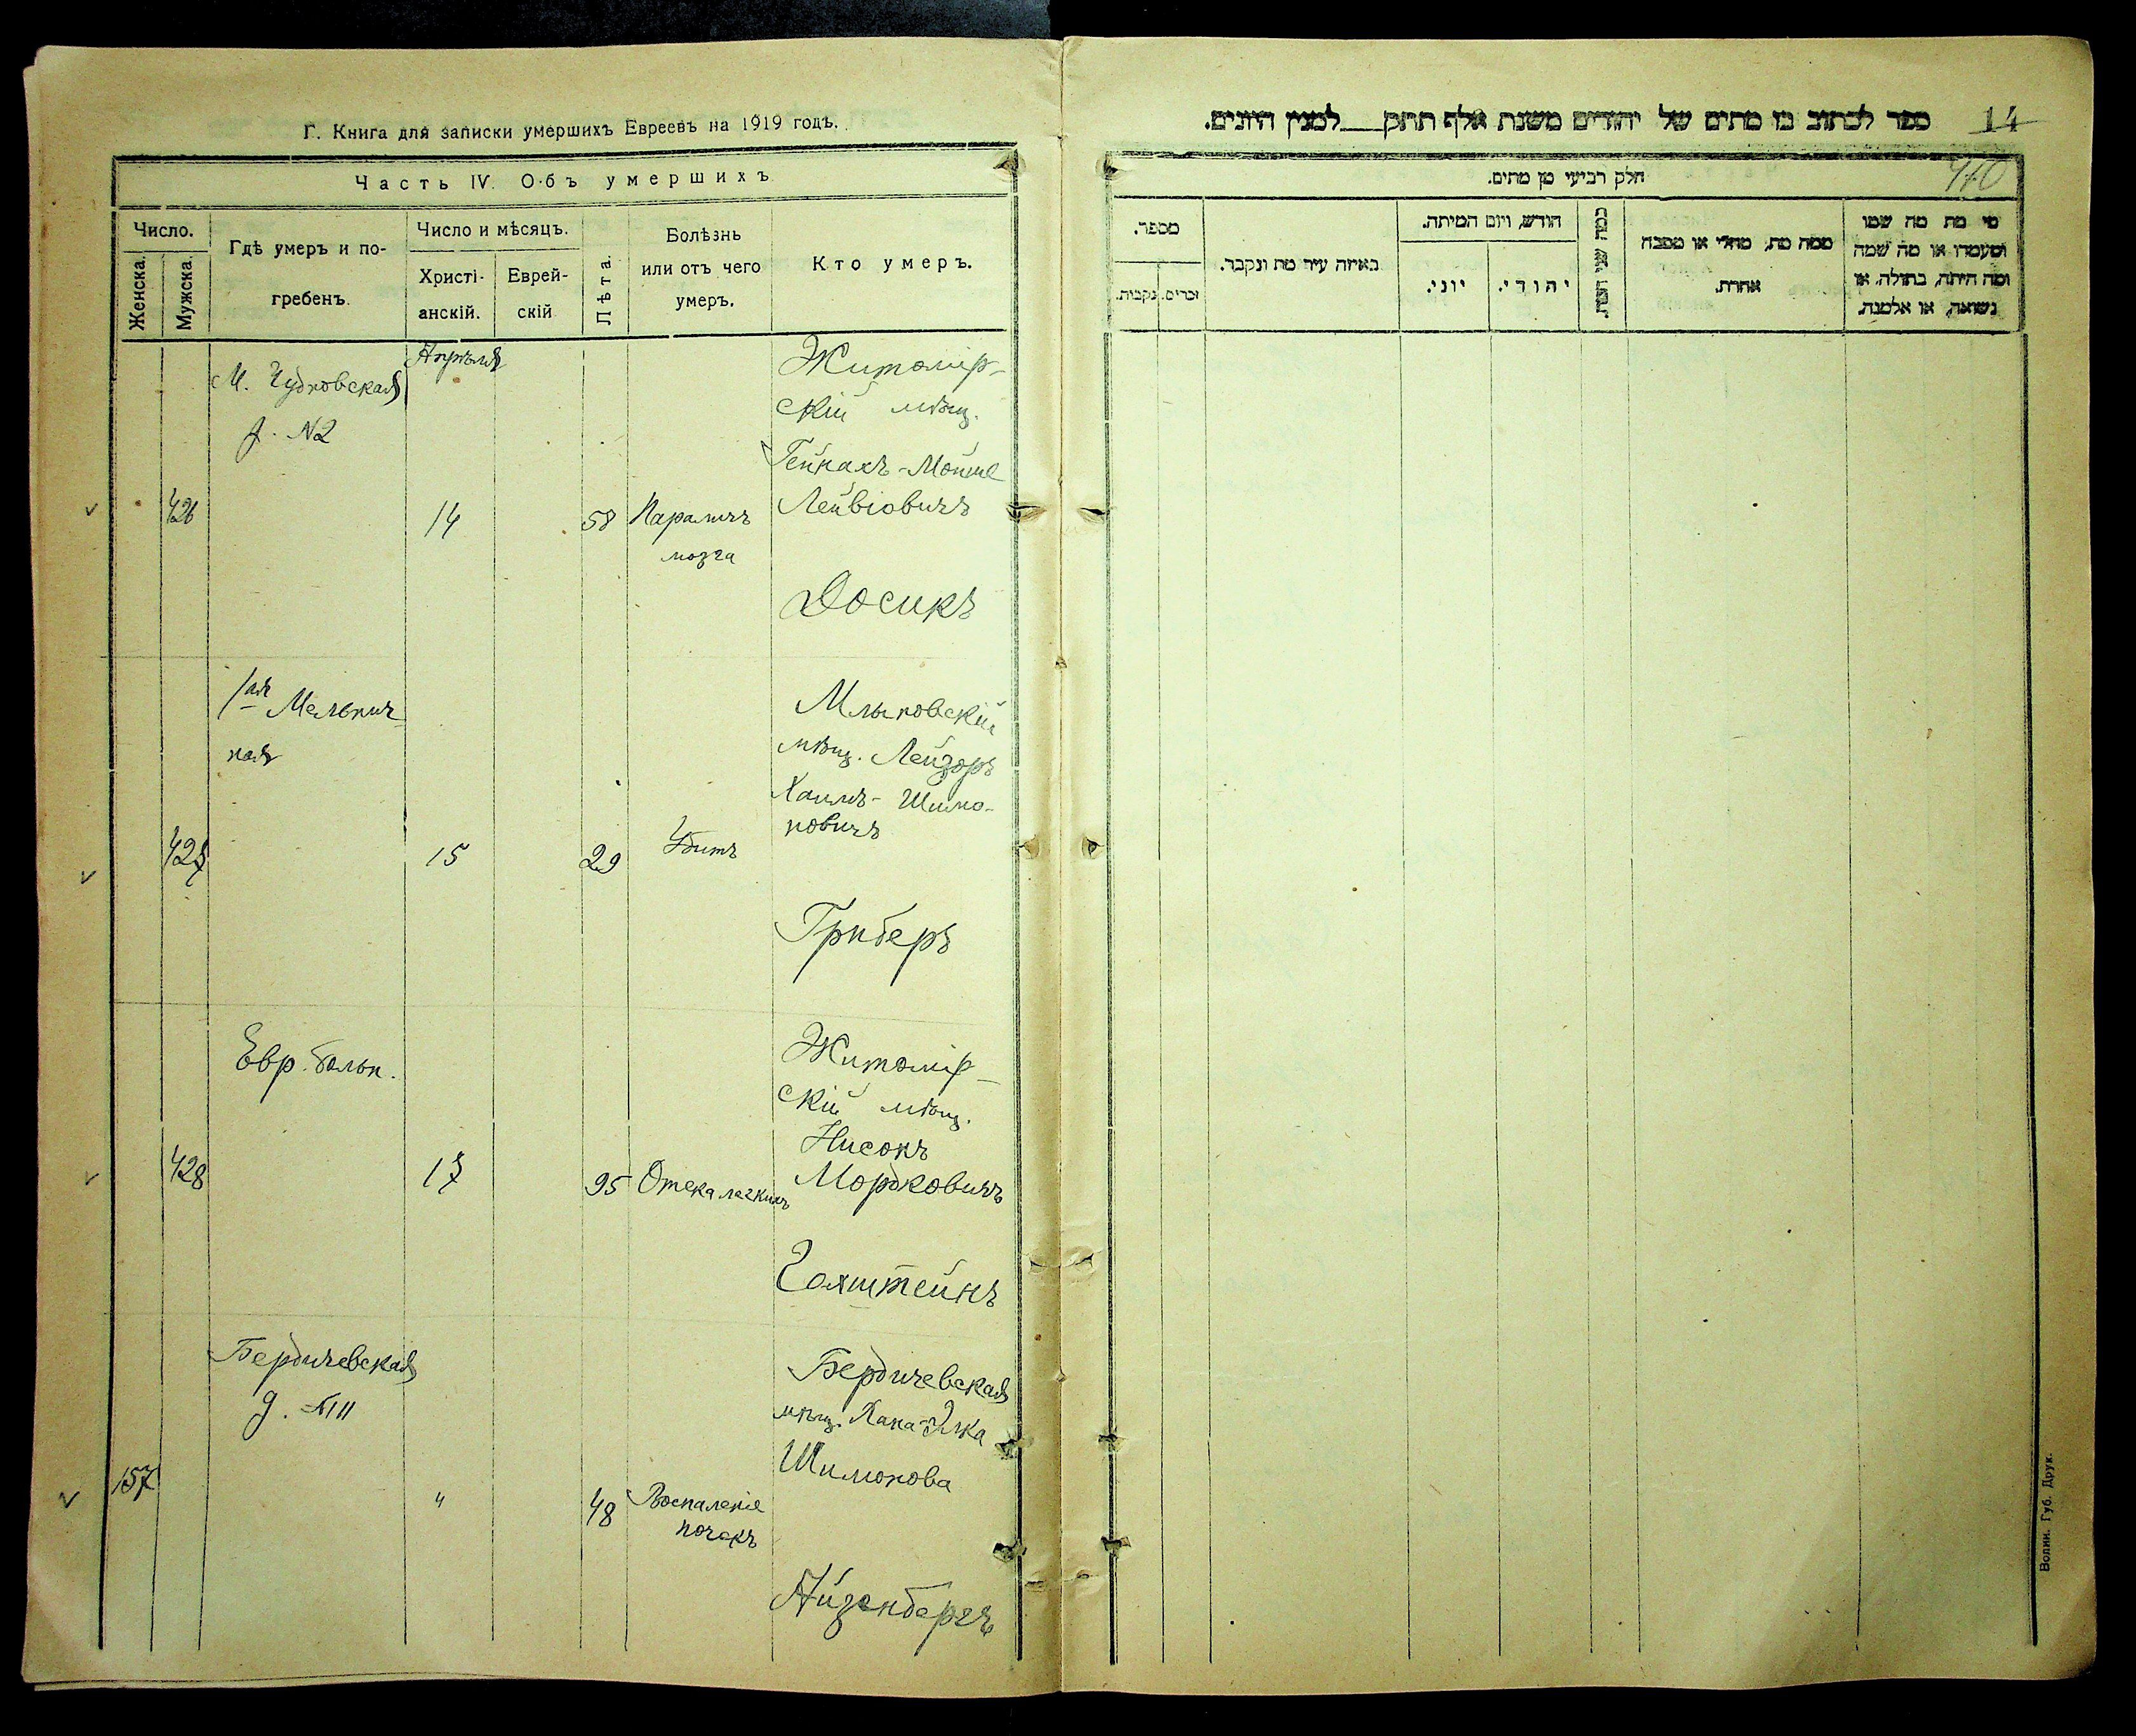 Г. Книга для записки умершихъ Евреевъ на 1919 годъ.
Часть IV. Объ умершихъ
Число.
Женска.
Мужска.
Гдѣ умеръ и по-
гребенъ.
Число и мѣсяцъ.
Христі-
анскій.
Еврей-
скій
Лѣта.
Болѣзнь
или отъ чего
умеръ.
Кто умеръ.
М. Чудновская
д. №2
Апрѣля
426
14
58
Параличъ
мозга
Житомір-
скій мѣщ.
Гейнахъ-Мойше
Лейбовичъ
Досикъ
1ая Мельнич-
ная
427
15
29
Убитъ
мѣщ. Лейзоръ
Хаимъ-Шимо-
новичъ
Гриберъ
Евр. больн.
428
17
95
Отека легкихъ
Житомір-
скій мѣщ.
Нисонъ
Мордковичъ
Голштейнъ
Бердичевская
д. №11
157
"
48
Воспаленіе
почекъ
Бердичевская
мѣщ. Хана-Элка
Шимонова
Айзенбергъ
ספר לכתוב בו מתים של יהודים משנת אלף תתק___למנין היונים.
14
410
חלק רביעי מן מתים.
מספר.
זכרים.
נקבות.
באיזה עיר מת ונקבר.
חודש, ויום המיתה.
יוני.
יהודי.
ממה מת, מחלי או מסבה
אחרת.
מי מת מה שמו
ומעמדו או מה שמה
ומה היתה, בתולה, או
נשואה, או אלמנה.
Волин. Губ. Друк.